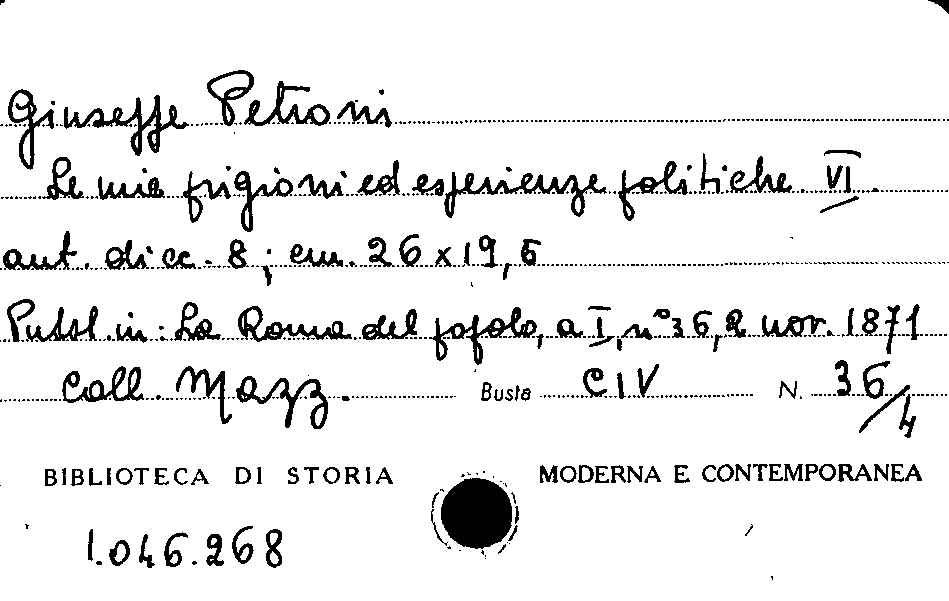 Giuseppe Petroni
Le mie prigioni ed esperienze politiche. VI.
aut. di cc. 8; cm. 26 x 19,5
Pubbl. in: La Roma del popolo, a I, n° 36, 2 nov. 1871
Coll. Mazz. Busta CIV N. 36/4
BIBLIOTECA DI STORIA MODERNA E CONTEMPORANEA
1.046.268